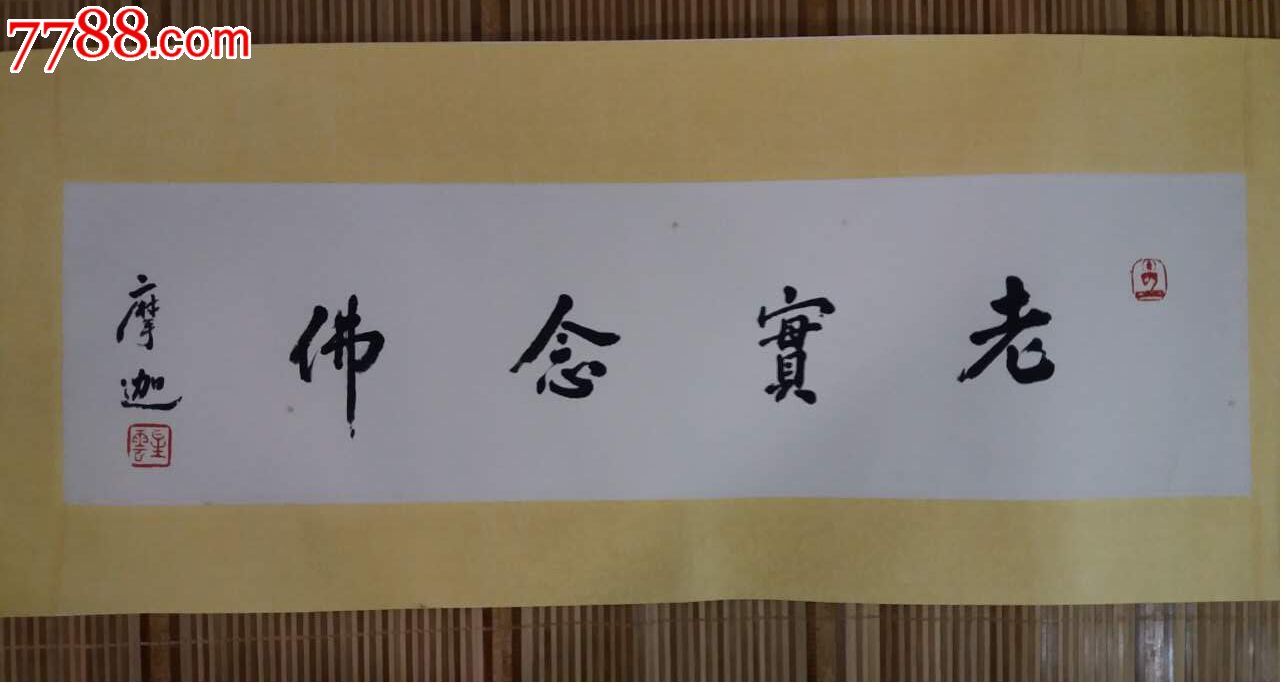 7788.com
老實念佛
摩迦